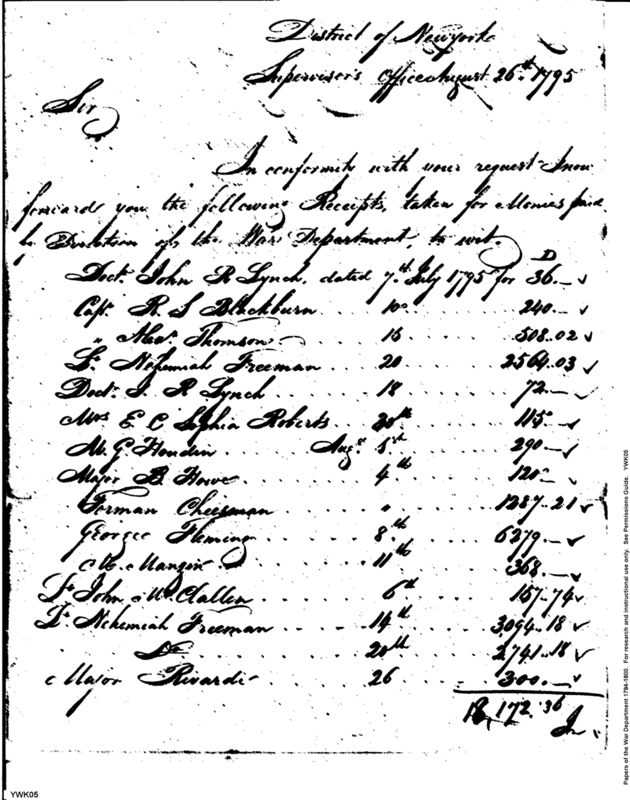 District of Newyork
Supervisor's Office August 26.th 1795
Sir
In conformity with your request I now
forward you the following Receipts, taken for Monies paid
by Direction of the War Department, to wit.
D
Doct. John R Lynch. dated 7.th July 1795 for 36.—
Capt. R. S Blackburn ... 10 ... 240.—
" Alex. Thomson ... 16 ... 508.02
Lt. Nehemiah Freeman ... 20 ... 2564.03
Doct. J. R Lynch ... 18 ... 72.—
Mrs E C Sophia Roberts ... 30th ... 115.
M. G Houdin ... Augt. 5th ... 290.—
Major B. Howe ... 4th ... 120
Forman Cheesman ... " ... 1287.21
George Fleming ... 8.th ... 6279.—
Mangin ... 11th ... 368.—
Lt John McClallen ... 6th ... 157.74
Lt Nehemiah Freeman ... 14th ... 3,094.18
Do ... 20th ... 2,741.18
Major Rivardi ... 26 ... 300.—
18,172.36
In
YWK05
Papers of the War Department 1784-1800. For research and instructional use only. See Permissions Guide. YWK05